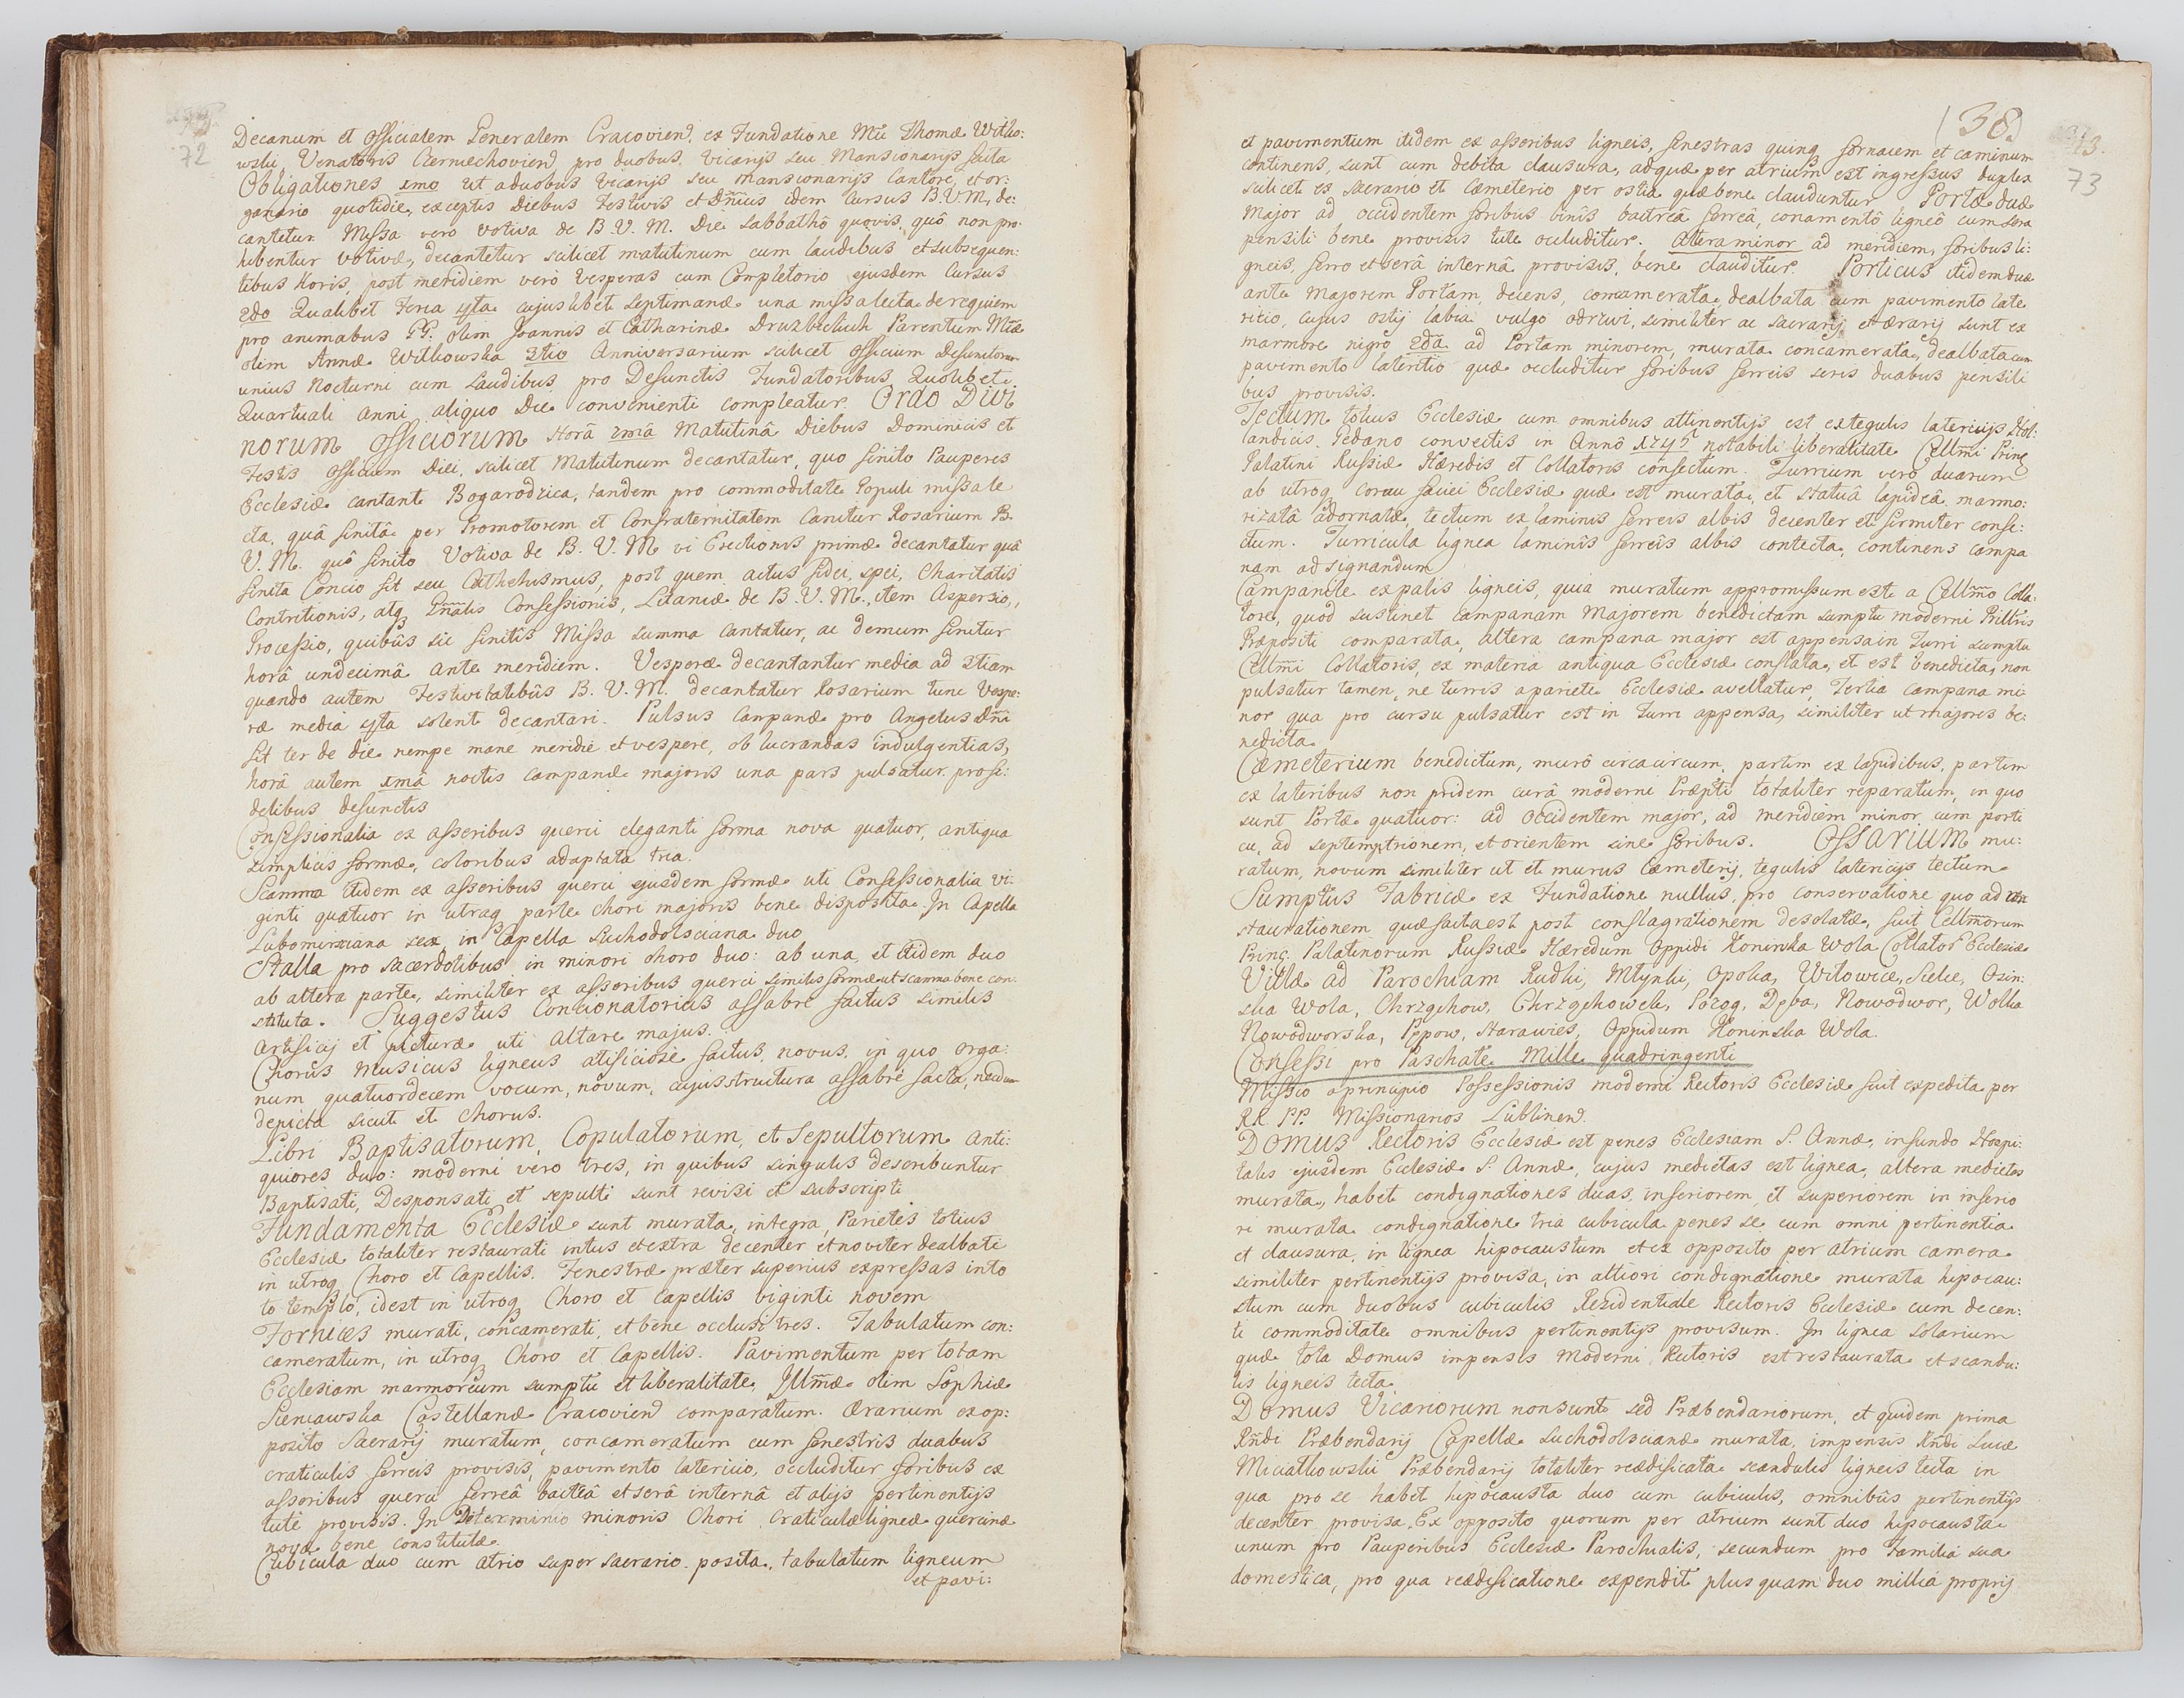 72
Decanum et Officialem Generalem Cracovien̄. ex Fundatione Mći Thomæ Witko:
wski, Venatoris Czerniechovien̄ pro duobus Vicarijs seu Mansionarijs facta
Obligationes 1mo Ut a duobus Vicarijs seu Mansionarijs Cantore et or:
ganario quotidie, exceptis Diebus Festivis et Dn̄icis idem Cursus B.V.M. de:
cantetur. Missa vero votiva de B. V. M. Die Sabbathô quovis, quô non pro:
hibentur votivæ, decantetur scilicet matutinum cum laudibus et subsequen:
tibus Horis, post meridiem verò Vesperas cum Completorio ejusdem Cursus
2do Qualibet Feria 4ta cujuslibet septimanæ una missa lecta de requiem
pro animabus GG. olim Joannis et Catharinæ Druzbickich Parentum Mćæ
olim Annæ Witkowska 3tio Anniversarium scilicet officium Defunctorum
unius Nocturni cum Laudibus pro Defunctis Fundatoribus Quolibet
Quartuali anni aliquo Die convenienti compleatur. Ordo Divi
norum Officiorum Horâ 1mâ Matutinâ Diebus Dominicis et
Festis Officium Diei, scilicet Matutinum decantatur, quo finito Pauperes
Ecclesiæ cantant Bogarodzica, tandem pro commoditate Populi missa le
cta, quâ finitâ per Promotorem et Confraternitatem Canitur Rosarium B.
V. M. quô finito Votiva de B. V. M. vi Erectionis primæ decantatur quâ
finita Concio fit seu Cathehismus, post quem actus fidei, spei, Charitatis
Contritionis, atq̨ Gn̄alis Confessionis, Litaniæ de B. V. M., item Aspersio,
Processio, quibûs sic finitîs Missa summa Cantatur, ac demum finitur
horâ undecimâ ante meridiem. Vesperæ decantantur media ad 3tiam
quando autem Festivitatibûs B. V. M. decantatur Rosarium tunc Vespe:
ræ media 4ta solent decantari. Pulsus Campanæ pro Angelus Dn̄i
fit ter de die nempe mane meridie et vespere, ob lucrandas indulgentias,
horâ autem 1mâ noctis campanæ majoris una pars pulsatur pro fi:
delibus defunctis
Confessionalia ex asseribus querci eleganti forma nova quatuor, antiqua
simplicis formæ, coloribus adaptata tria.
Scamna itidem ex asseribus querci ejusdem formæ uti Confessionalia vi:
ginti quatuor in utraq̨ parte chori majoris bene disposita. In Capella
Lubomirsciana sex, in Capella Suchodolsciana duo
Stalla pro sacerdotibus in minori choro duo: ab una, et itidem duo
ab altera parte, similiter ex asseribus querci similis formæ ut scamna bene con:
stituta. Suggestus Concionatorius affabré factus similis
artificij et picturæ uti Altare majus.
Chorûs Musicus ligneus atificiosé factus, novus, in quo orga:
num quatuordecem vocum, novum, cujus structura affabré facta, necdum
depicta sicut et Chorus.
Libri Baptisatorum, Copulatorum, et Sepultorum anti:
quiores duo: moderni vero tres, in quibus singulis describuntur
Baptisati, Desponsati, et sepulti sunt revisi et subscripti
Fundamenta Ecclesiæ sunt murata, integra, Parietes totius
Ecclesiæ totaliter restaurati intus et extra decenter et noviter dealbati
in utroq̨ Choro et Capellis. Fenestræ præter superius expressas into
to templo, id est in utroq̨ Choro et Capellis viginti novem
Fornices murati, concamerati, et bene occlusi tres. Tabulatum con:
cameratum, in utroq̨ Choro et Capellis. Pavimentum per totam
Ecclesiam marmoreum sumptu et liberalitate Illmæ olim Sophiæ
Sieniawska Castellanæ Cracovien̄ comparatum. Ærarium ex op:
posito Sacrarij muratum, concameratum cum fenestris duabus
craticulis ferreis provisis, pavimento latericio, occluditur foribus ex
asseribus querci ferreâ bacteâ et serâ internâ et alijs pertinentijs
tute provisis. In Determinio minoris Chori Craticulæ ligneæ quercinæ
novæ bene constitutæ.
Cubicula duo cum atrio super sacrario posita, tabulatum ligneum
et pavi:
(38)
73
et pavimentum itidem ex asseribus ligneis, fenestras quinq̨ fornacem et caminum
continens, sunt cum debita clausura, ad quæ per atrium est ingressus duplex
scilicet ex sacrario et Cæmeterio per ostia quæ bene clauduntur Portæ duæ
Major ad occidentem foribus binis bactreâ ferreâ, conamentô ligneô cum sera
pensili bene provisis tute occluditur. Altera minor ad meridiem, foribus li:
gneis, ferro et serâ internâ provisis, bene clauditur. Porticus itidem duæ
ante Majorem Portam, decens, concamerata, dealbata cum pavimento late
ritio, cujus ostij labia vulgo odrzwi, similiter ac sacrarij et ærarij sunt ex
marmore nigro 2da ad Portam minorem, murata concamerata, dealbata cum
pavimento lateritio quæ occluditur foribus ferreis seris duabus pensili
bus provisis.
Tectum totius Ecclesiæ cum omnibus attinentijs est ex tegulis latericijs Hol:
landicis Gedano convectis in Annô 1745 notabili liberalitate Cellm̄i Princ
Palatini Russiæ Hæredis et Collatoris confectum. Turrium vero duarum
ab utroq̨ cornu faciei Ecclesiæ quæ est murata, et statuâ lapideâ, marmo:
rizatâ adornatæ, tectum ex laminis ferreis albis decenter et firmiter confe:
ctum. Turricula lignea laminis ferreis albis contecta, continens campa
nam ad signandum
Campanile ex palis ligneis, quia muratum appromissum est a Cellm̄o Colla:
tore, quod sustinet campanam Majorem benedictam sumptu moderni Prilltris
Præpositi comparata, altera campana major est appensa in Turri sumptu
Cellm̄i Collatoris, ex materia antiqua Ecclesiæ conflata, et est benedicta, non
pulsatur tamen, ne turris a pariete Ecclesiæ avellatur, Tertia campana mi
nor qua pro cursu pulsatur est in Turri appensa, similiter ut majores be:
nedicta.
Cæmeterium benedictum, murô circa circum, partim ex lapidibus, partim
ex lateribus non pridem curâ moderni Præpti totaliter reparatum, in quo
sunt Portæ quatuor: ad occidentem major, ad meridiem minor cum porti
cu, ad septemptrionem, et orientem sine foribus. Ossarium mu:
ratum, novum similiter ut et murus Cæmeterij, tegulis latericijs tectum
Sumptus Fabricæ ex Fundatione nullus, pro conservatione quo ad con
staurationem quæ facta est post conflagrationem desolatæ, fuit Cellm̄orum
Princ. Palatinorum Russiæ Hæredum Oppidi Koninska Wola Collator Ecclesiæ
Villæ ad Parochiam Rudki, Mlynki, Opoka, Witowice, Sielce, Osin:
ska Wola, Chrząchow, Chrząchowek, Pożog, Dęba, Nowodwor, Wolka
Nowodworska, Pępow, Starawieś, Oppidum Koninska Wola.
Confessi pro Paschate Mille quadringenti
Missio a principio Possessionis moderni Rectoris Ecclesiæ fuit expedita per
RR. PP. Missionarios Lublinen̄.
Domus Rectoris Ecclesiæ est penes Ecclesiam S. Annæ, in fundo Hospi:
talis ejusdem Ecclesiæ S. Annæ, cujus medietas est lignea, altera medietas
murata, habet condignationes duas, inferiorem, et superiorem in inferio
ri murata condignatione tria cubicula penes se cum omni pertinentia
et clausura, in lignea hipocaustum et ex opposito per atrium camera
similiter pertinentijs provisa, in altiori condignatione murata hipocau:
stum cum duobus cubiculis Rezidentiale Rectoris Ecclesiæ cum decen:
ti commoditate omnibus pertinentijs provisum. In lignea solarium
quæ tota Domus impensis Moderni Rectoris est restaurata et scandu:
lis ligneis tecta.
Domus Vicariorum non sunt sed Præbendariorum, et quidem prima
Rn̄di Præbendarij Capellæ Suchodolscianæ murata, impensis Rn̄di Lucæ
Miciałkowski Præbendarij totaliter reædificata scandulis ligneis tecta in
qua pro se habet hipocausta duo cum cubiculis, omnibûs pertinentijs
decenter provisa. Ex opposito quorum per atrium sunt duo hipocausta
unum pro Pauperibus Ecclesiæ Parochialis, secundum pro Familiâ sua
domestica, pro qua reædificatione expendit plus quam duo millia proprij